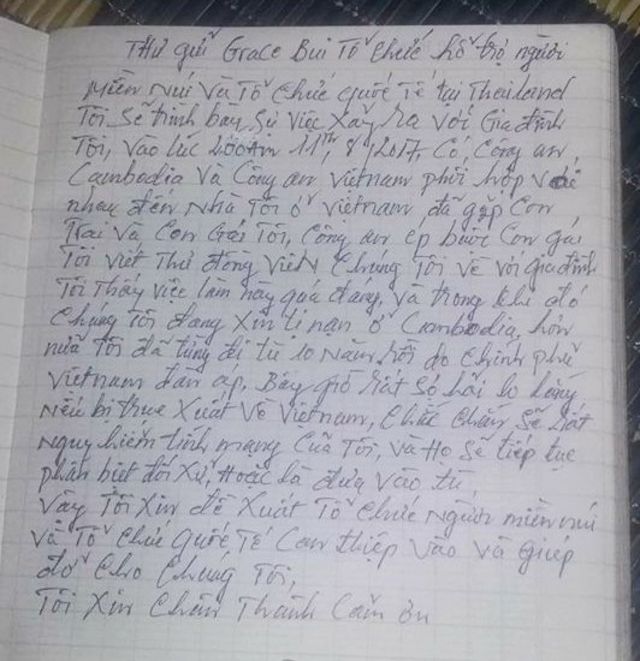 Thư gửi Grace Bui Tổ chức hỗ trợ người
Miền Núi Và Tổ Chức quốc Tế tại Thailand
Tôi Sẽ trình bày Sự Việc Xảy Ra Với Gia đình
Tôi, Vào lúc 2:00Am 11th, 8/2017, Có, Công an,
Cambodia Và Công an Vietnam phối hợp Với
nhau đến Nhà Tôi ở Vietnam đã gặp Con
Trai Và Con Gái Tôi, Công an ép buộc Con gái
Tôi Viết Thư động Viên Chúng Tôi Về Với gia đình
Tôi Thấy Việc làm này quá đáng, Và trong khi đó
Chúng Tôi đang Xin tị nạn ở Cambodia, hơn
nữa Tôi đã từng đi tù 10 Năm, rồi do Chính phủ
Vietnam đàn áp. Bây giờ rất Sợ hãi lo lắng
Nếu bị trục Xuất Về Vietnam, Chắc Chắn Sẽ Rất
Nguy hiểm tính mạng Của Tôi, Và Họ Sẽ tiếp tục
phân biệt đối Xử, Hoặc là đưa Vào tù,
Vậy Tôi Xin đề Xuất Tổ Chức Người miền núi
Và Tổ Chức Quốc Tế Can thiệp Vào Và Giúp
đỡ Cho Chúng Tôi,
Tôi Xin Chân Thành Cảm ơn